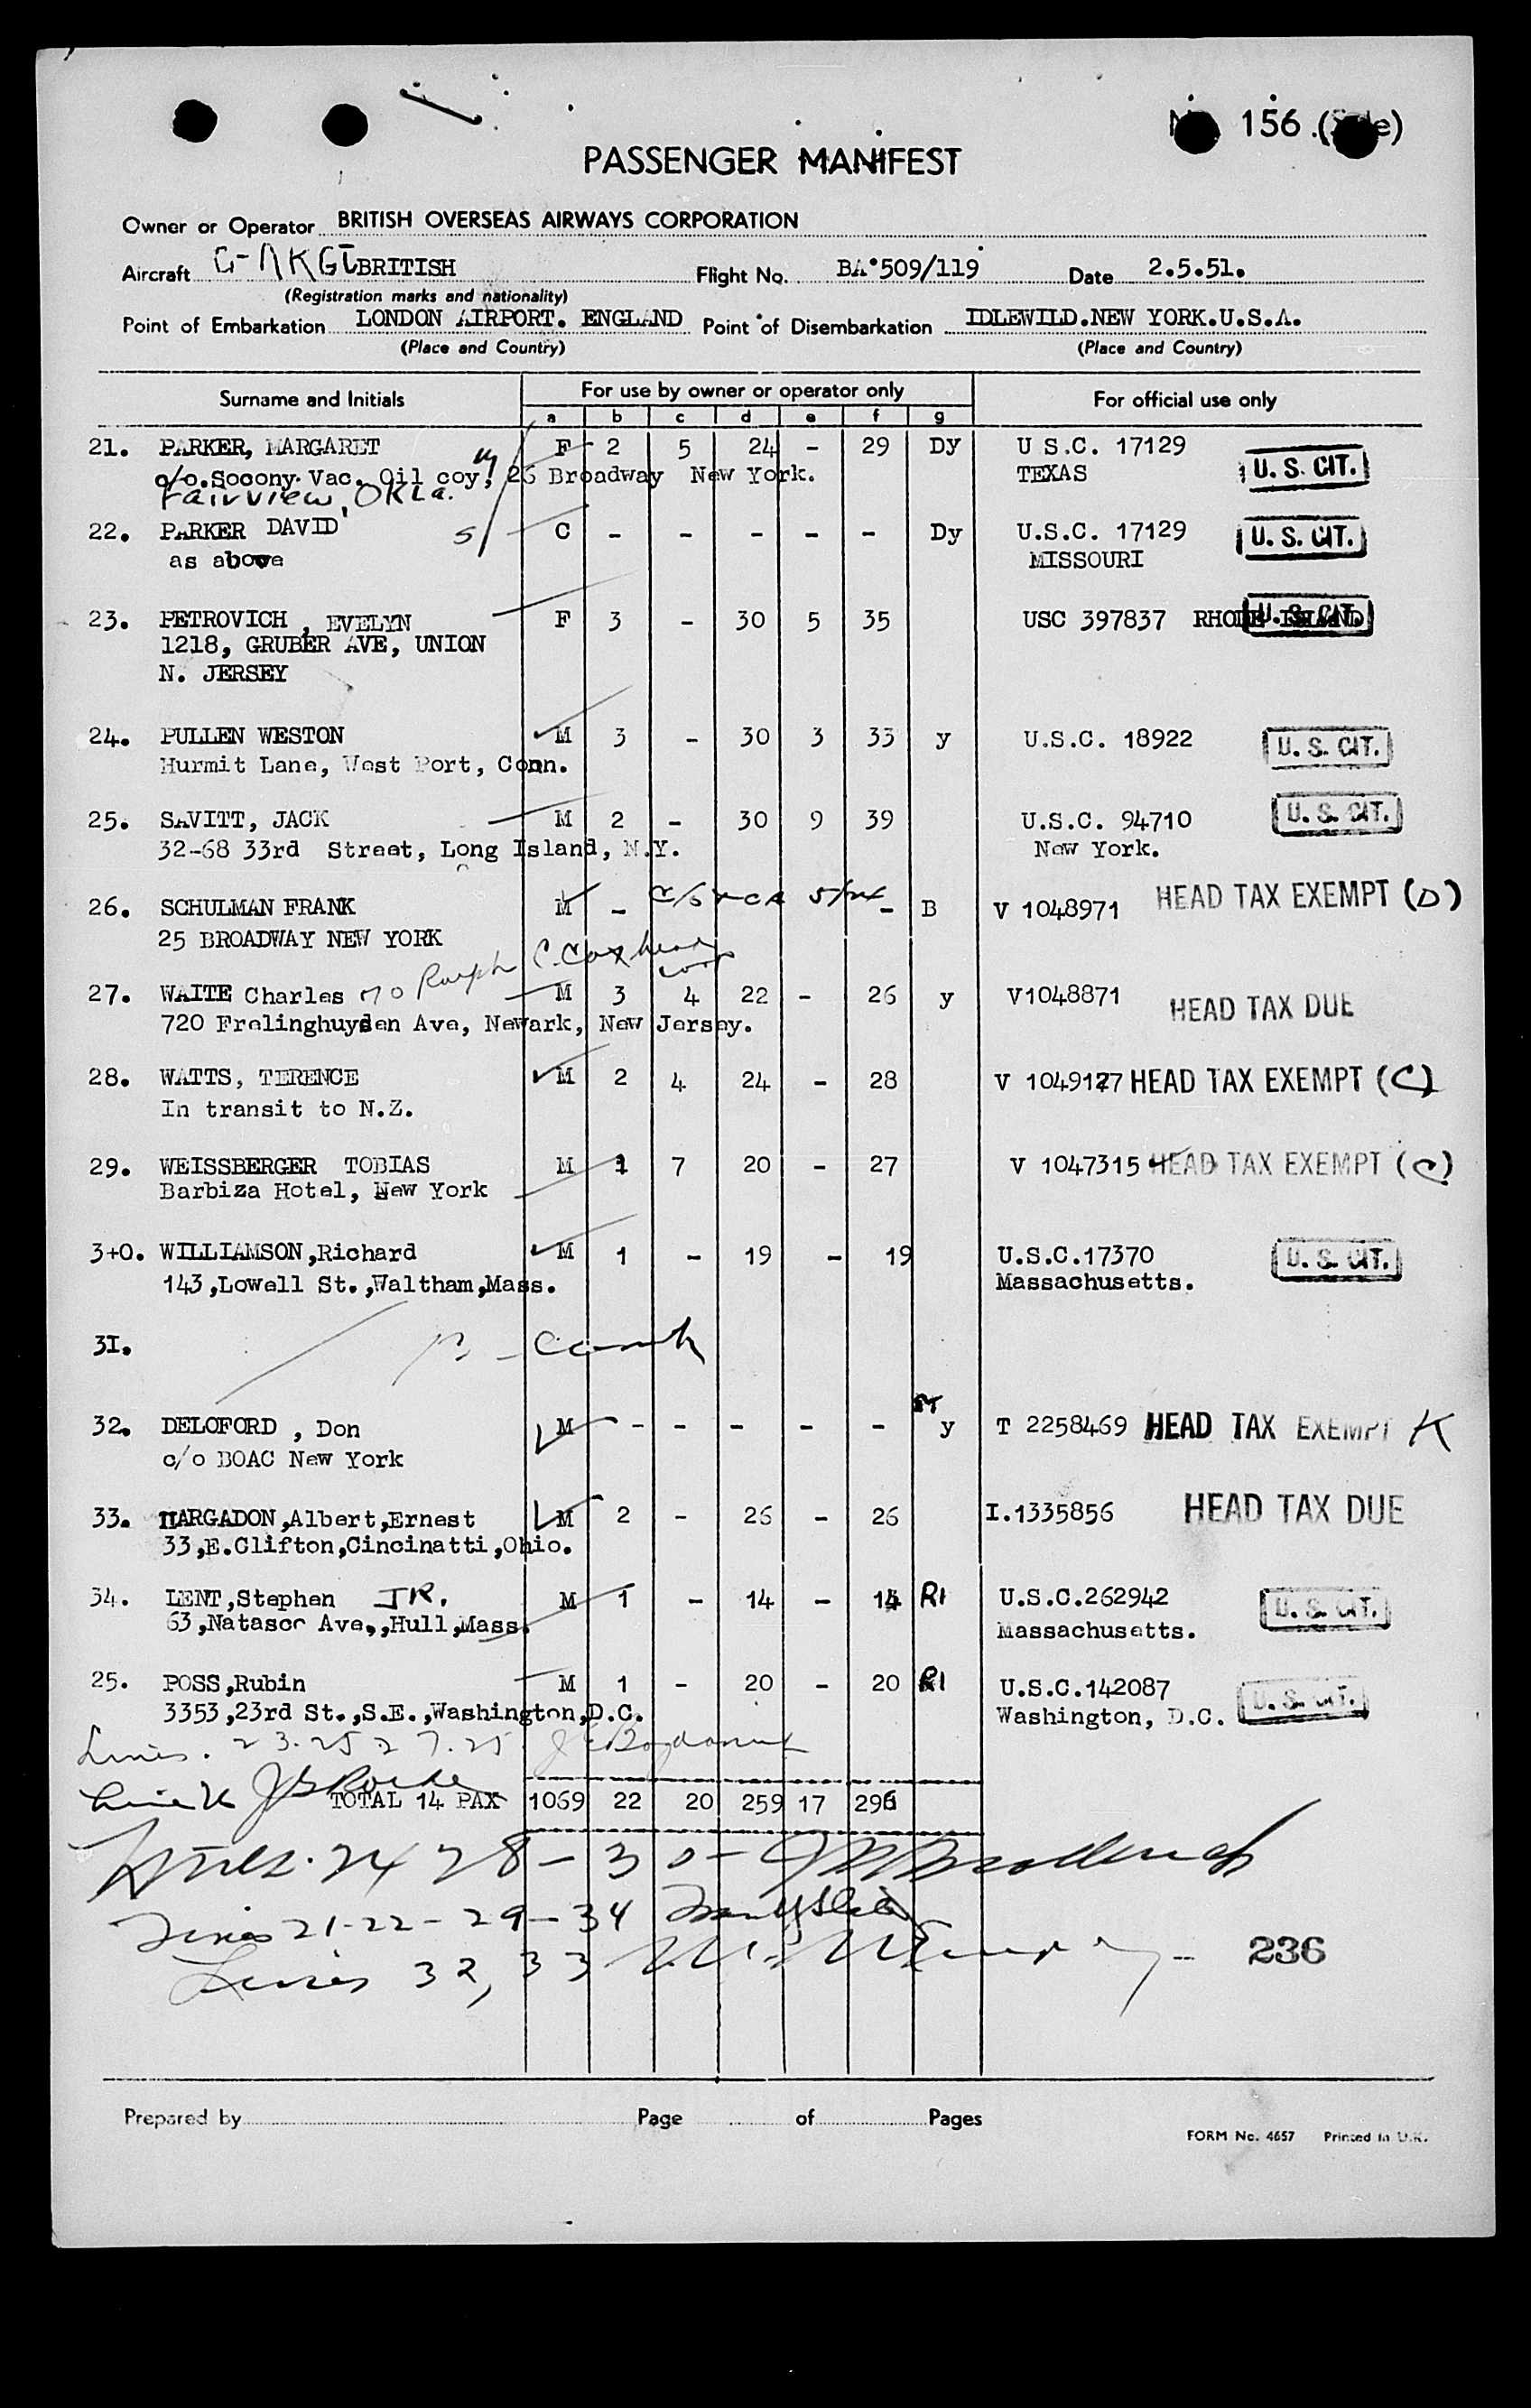 156
PASSENGER MANIFEST
Owner or Operator BRITISH OVERSEAS AIRWAYS CORPORATION
Aircraft G-AKGL BRITISH Flight No. BA.509/119 Date 2.5.51.
(Registration marks and nationality)
Point of Embarkation LONDON AIRPORT. ENGLAND Point of Disembarkation IDLEWILD.NEW YORK.U.S.A.
(Place and Country) (Place and Country)
Surname and Initials For use by owner or operator only For official use only
a b c d e f g
21. PARKER, MARGARET F 2 5 24 - 29 Dy U S.C. 17129
c/o.Socony Vac. Oil coy, 26 Broadway New York. TEXAS U. S. CIT.
Fairview, OKLa.
22. PARKER DAVID 5/ C - - - - - Dy U.S.C. 17129 U. S. CIT.
as above MISSOURI
23. PETROVICH , EVELYN F 3 - 30 5 35 USC 397837 RHODE ISLAND U. S. CIT.
1218, GRUBER AVE, UNION
N. JERSEY
24. PULLEN WESTON M 3 - 30 3 33 y U.S.C. 18922 U. S. CIT.
Hurmit Lane, West Port, Conn.
25. SAVITT, JACK M 2 - 30 9 39 U.S.C. 94710 U. S. CIT.
32-68 33rd Street, Long Island, N.Y. New York.
26. SCHULMAN FRANK M - - B V 1048971 HEAD TAX EXEMPT (D)
25 BROADWAY NEW YORK
Ralph C. Coxhead Corp
27. WAITE Charles M 3 4 22 - 26 y V1048871 HEAD TAX DUE
720 Frelinghuysen Ave, Newark, New Jersey.
28. WATTS, TERENCE M 2 4 24 - 28 V 1049127 HEAD TAX EXEMPT (C)
In transit to N.Z.
29. WEISSBERGER TOBIAS M 1 7 20 - 27 V 1047315 HEAD TAX EXEMPT (C)
Barbiza Hotel, New York
3+0. WILLIAMSON,Richard M 1 - 19 - 19 U.S.C.17370 U. S. CIT.
143,Lowell St.,Waltham,Mass. Massachusetts.
31.
32. DELOFORD , Don M - - - - - y T 2258469 HEAD TAX EXEMPT K
c/o BOAC New York
33. HARGADON,Albert,Ernest M 2 - 26 - 26 I.1335856 HEAD TAX DUE
33,E.Clifton,Cincinatti,Ohio.
34. LENT,Stephen JR. M 1 - 14 - 14 RI U.S.C.262942 U. S. CIT.
63,Natascr Ave,,Hull,Mass. Massachusetts.
25. POSS,Rubin M 1 - 20 - 20 RI U.S.C.142087 U. S. CIT.
3353,23rd St.,S.E.,Washington,D.C. Washington, D.C.
Lines. 23.25.27.25
TOTAL 14 PAX 1069 22 20 259 17 296
Lines. 24 28 - 30 -
Lines 21-22-29-34
Lines 32, 33
236
Prepared by Page of Pages
FORM No. 4657 Printed in U.K.